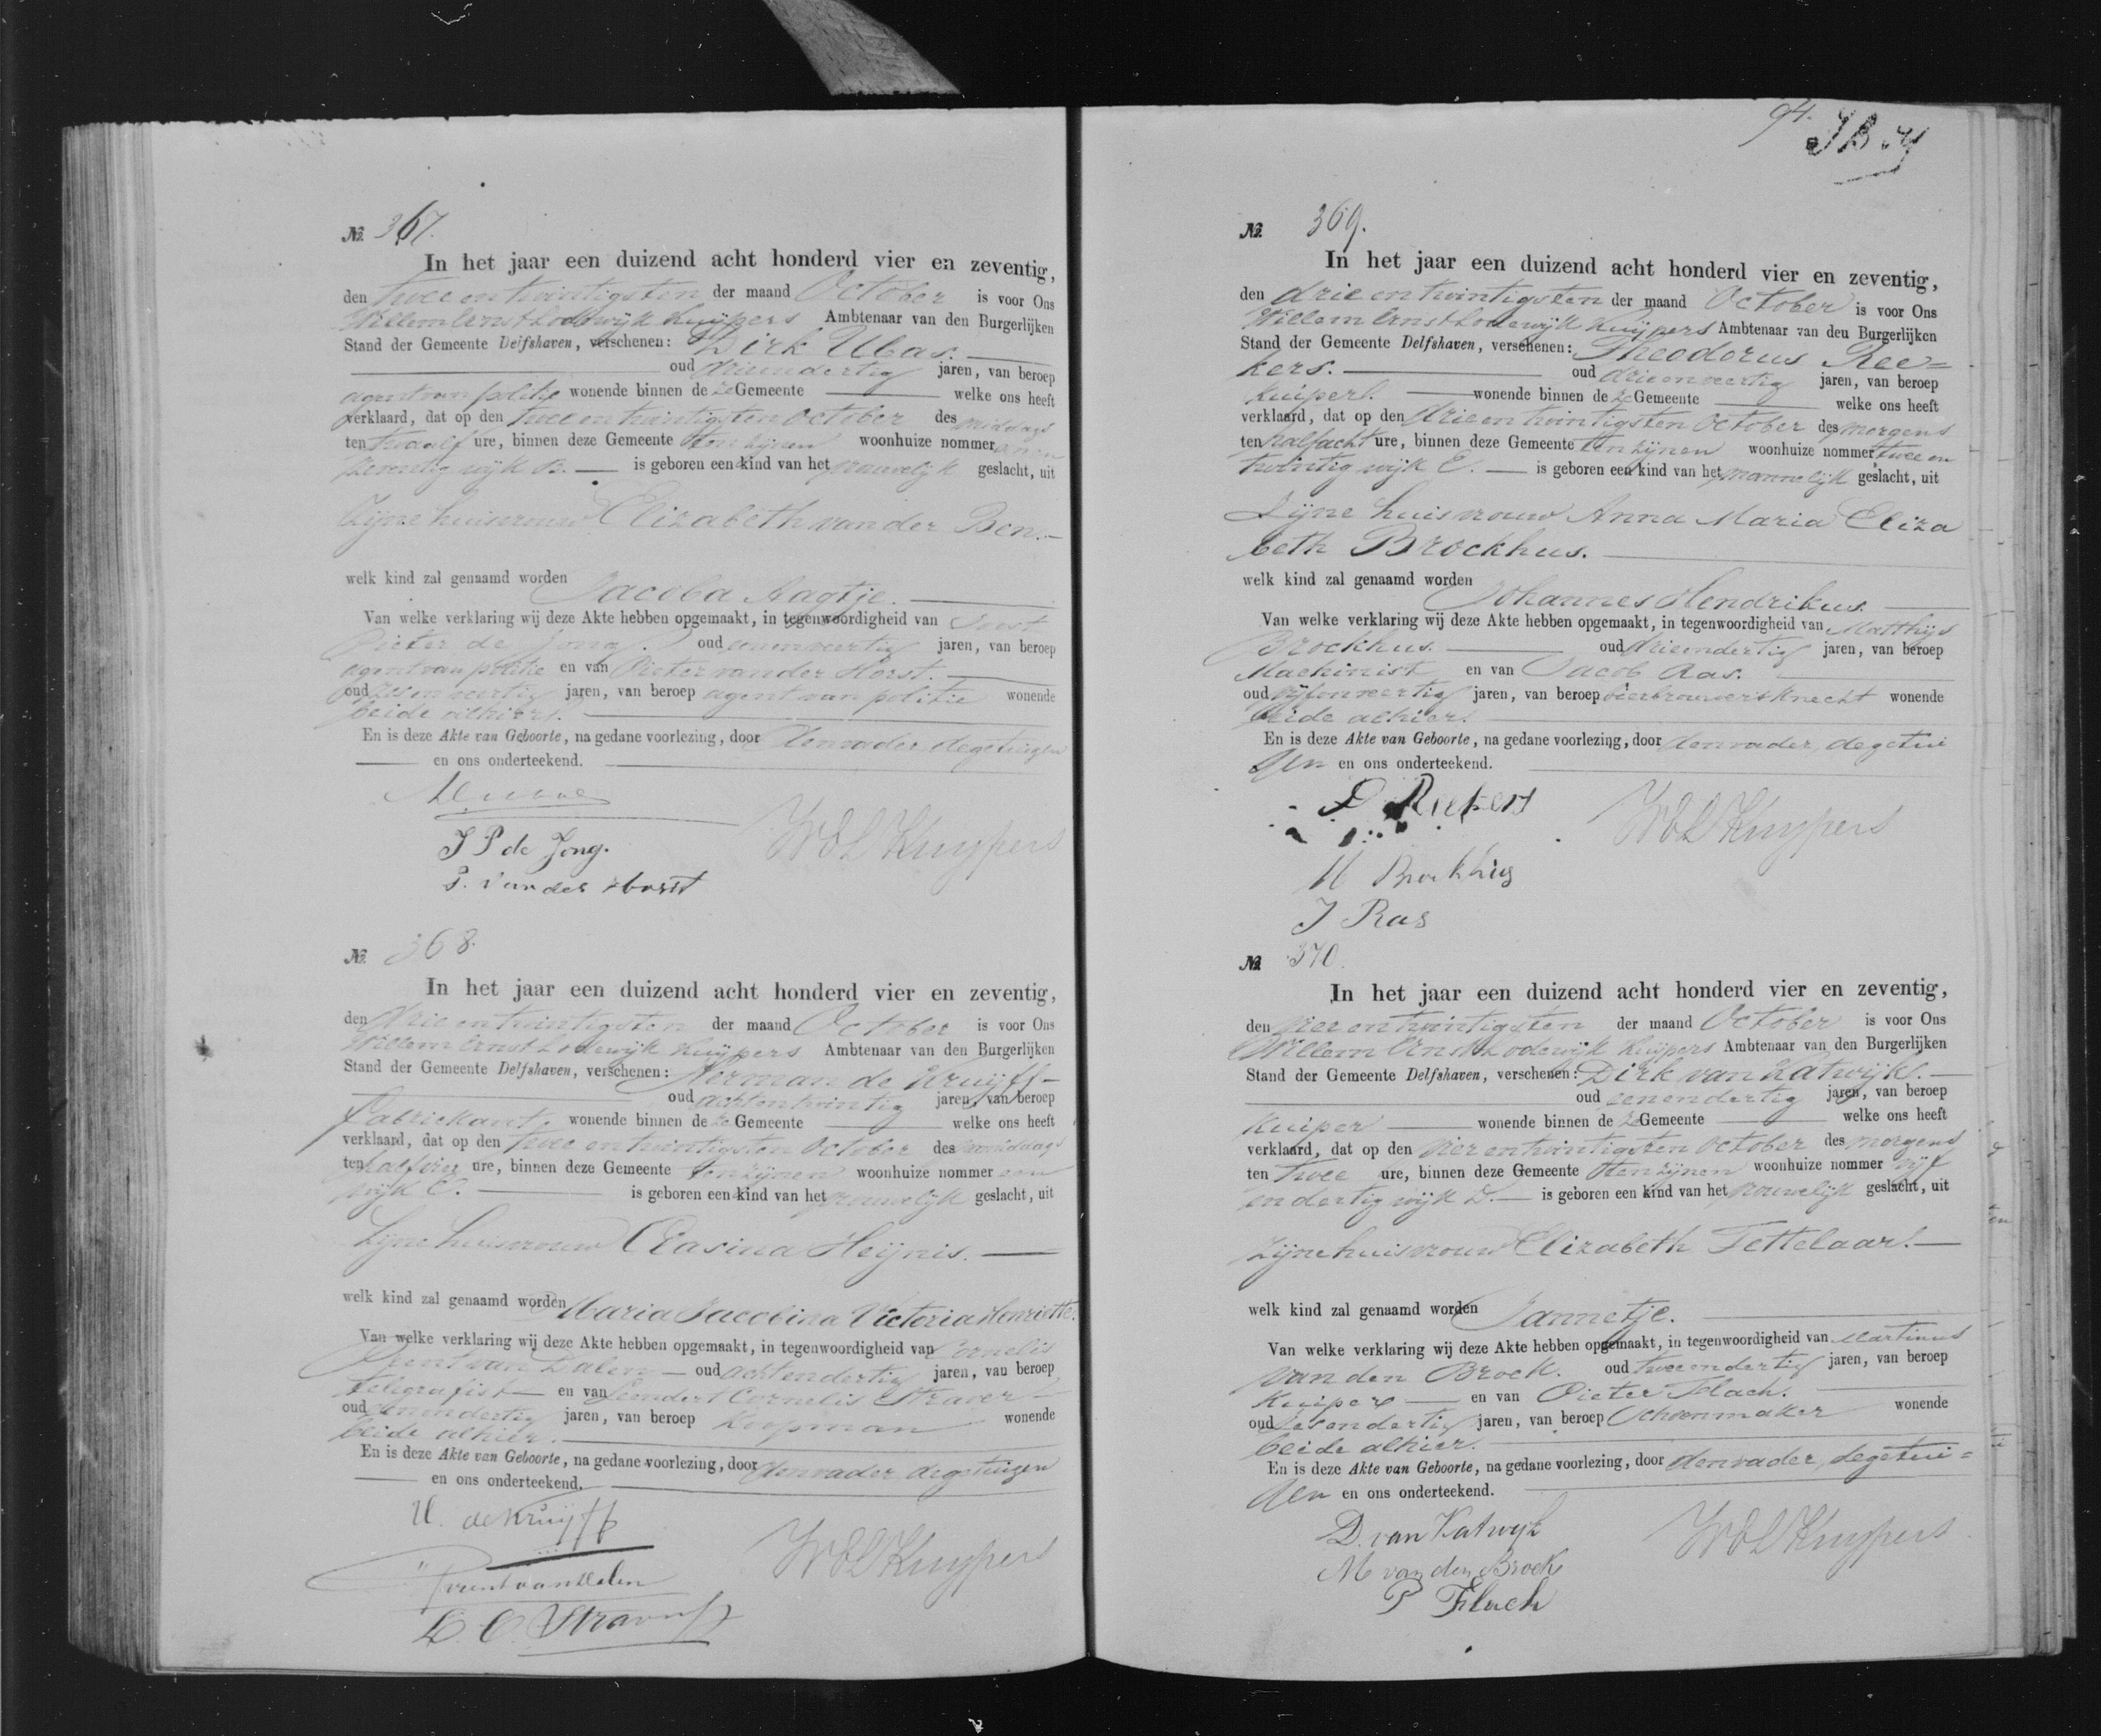 94.
No. 367.
In het jaar een duizend acht honderd vier en zeventig,
den twee en twintigsten der maand October is voor Ons
Willem Ernst Lodewijk Kuijpers Ambtenaar van den Burgerlijken
Stand der Gemeente Delfshaven, verschenen: Dirk
oud drieendertig jaren, van beroep
agent van politie wonende binnen deze Gemeente welke ons heeft
verklaard, dat op den twee en twintigsten October des middags
ten twaalf ure, binnen deze Gemeente ten zijnen woonhuize nommer
zeventig wijk B. is geboren een kind van het vrouwelijk geslacht, uit
Zijne huisvrouw Elizabeth van der Ben.
welk kind zal genaamd worden Jacoba Aagtje.
Van welke verklaring wij deze Akte hebben opgemaakt, in tegenwoordigheid van Joost
Pieter de Jong. oud jaren, van beroep
agent van politie en van Pieter van der Horst.
oud zesenveertig jaren, van beroep agent van politie wonende
beide alhier.
En is deze Akte van Geboorte, na gedane voorlezing, door den vader, de getuigen
en ons onderteekend.
J P de Jong.
P. van der Horst
WEL Kuypers
No. 368.
In het jaar een duizend acht honderd vier en zeventig,
den drie en twintigsten der maand October is voor Ons
Willem Ernst Lodewijk Kuijpers Ambtenaar van den Burgerlijken
Stand der Gemeente Delfshaven, verschenen: Herman de Kruijff
oud achtentwintig jaren, van beroep
fabriekant, wonende binnen deze Gemeente welke ons heeft
verklaard, dat op den twee en twintigsten October des namiddags
ten half vier ure, binnen deze Gemeente ten zijnen woonhuize nommer een
wijk C. is geboren een kind van het vrouwelijk geslacht, uit
Zijne huisvrouw Clasina Heijnis.
welk kind zal genaamd worden Maria Jacobina Victoria Henriette.
Van welke verklaring wij deze Akte hebben opgemaakt, in tegenwoordigheid van Cornelis
van Dalen oud achtendertig jaren, van beroep
telegrafist en van Leendert Cornelis Straver
oud eenendertig jaren, van beroep Koopman wonende
beide alhier.
En is deze Akte van Geboorte, na gedane voorlezing, door den vader, de getuigen
en ons onderteekend.
H. de Kruijff
L. C. Straver
WEL Kuypers
No. 369.
In het jaar een duizend acht honderd vier en zeventig,
den drie en twintigsten der maand October is voor Ons
Willem Ernst Lodewijk Kuijpers Ambtenaar van den Burgerlijken
Stand der Gemeente Delfshaven, verschenen: Theodorus Ree=
kers. oud drieenveertig jaren, van beroep
Kuiper. wonende binnen deze Gemeente welke ons heeft
verklaard, dat op den drie en twintigsten October des morgens
ten half acht ure, binnen deze Gemeente ten zijnen woonhuize nommer twee en
twintig wijk E. is geboren een kind van het mannelijk geslacht, uit
Zijne huisvrouw Anna Maria Eliza
beth Brockhus.
welk kind zal genaamd worden Johannes Hendrikus.
Van welke verklaring wij deze Akte hebben opgemaakt, in tegenwoordigheid van Matthijs
Brockhus. oud drieendertig jaren, van beroep
Machinist en van Jacob Ras.
oud vijfenveertig jaren, van beroep bierbrouwersknecht wonende
beide alhier.
En is deze Akte van Geboorte, na gedane voorlezing, door den vader, de getui
gen en ons onderteekend.
M Brockhus
J Ras
WEL Kuypers
No. 370.
In het jaar een duizend acht honderd vier en zeventig,
den vier en twintigsten der maand October is voor Ons
Willem Ernst Lodewijk Kuijpers Ambtenaar van den Burgerlijken
Stand der Gemeente Delfshaven, verschenen: Dirk van Katwijk.
oud eenendertig jaren, van beroep
Kuiper wonende binnen deze Gemeente welke ons heeft
verklaard, dat op den vier en twintigsten October des morgens
ten twee ure, binnen deze Gemeente ten zijnen woonhuize nommer vijf
en dertig wijk D. is geboren een kind van het vrouwelijk geslacht, uit
zijne huisvrouw Elizabeth Tettelaar.
welk kind zal genaamd worden Jannetje.
Van welke verklaring wij deze Akte hebben opgemaakt, in tegenwoordigheid van Martinus
van den Broek. oud tweeendertig jaren, van beroep
Kuiper en van Pieter Flach.
oud zesendertig jaren, van beroep Schoenmaker wonende
beide alhier.
En is deze Akte van Geboorte, na gedane voorlezing, door den vader, de getui=
gen en ons onderteekend.
D. van Katwijk
M van den Broek
P Flach
WEL Kuypers